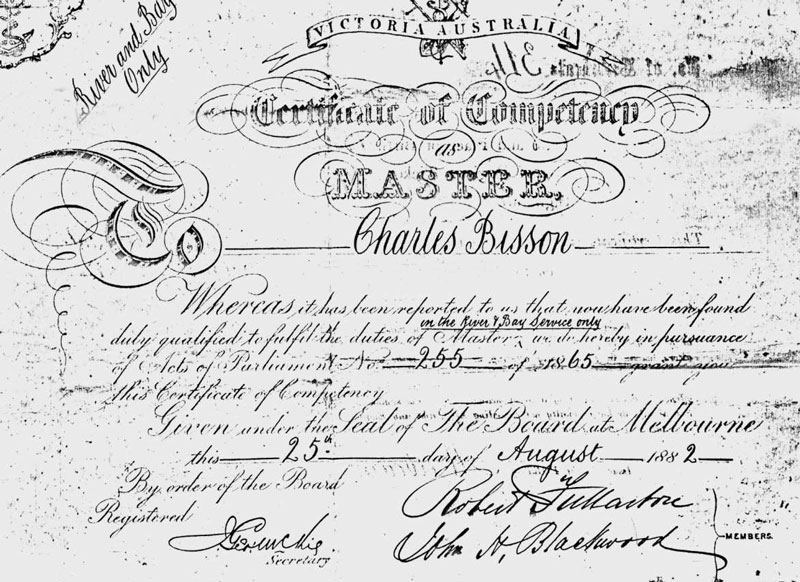 VICTORIA AUSTRALIA
River and Bay
Only
Certificate of Competency
as
MASTER,
To
Charles Bisson
Whereas it has been reported to us that you have been found
in the River & Bay Service only
duly qualified to fulfil the duties of Master, we do hereby in pursuance
of Acts of Parliament No. 255 of 1865 grant you
this Certificate of Competency
Given under the Seal of The Board at Melbourne
this 25th day of August 1882
By order of the Board
Registered
Secretary
Robert Fullarton
John H. Blackwood
MEMBERS.